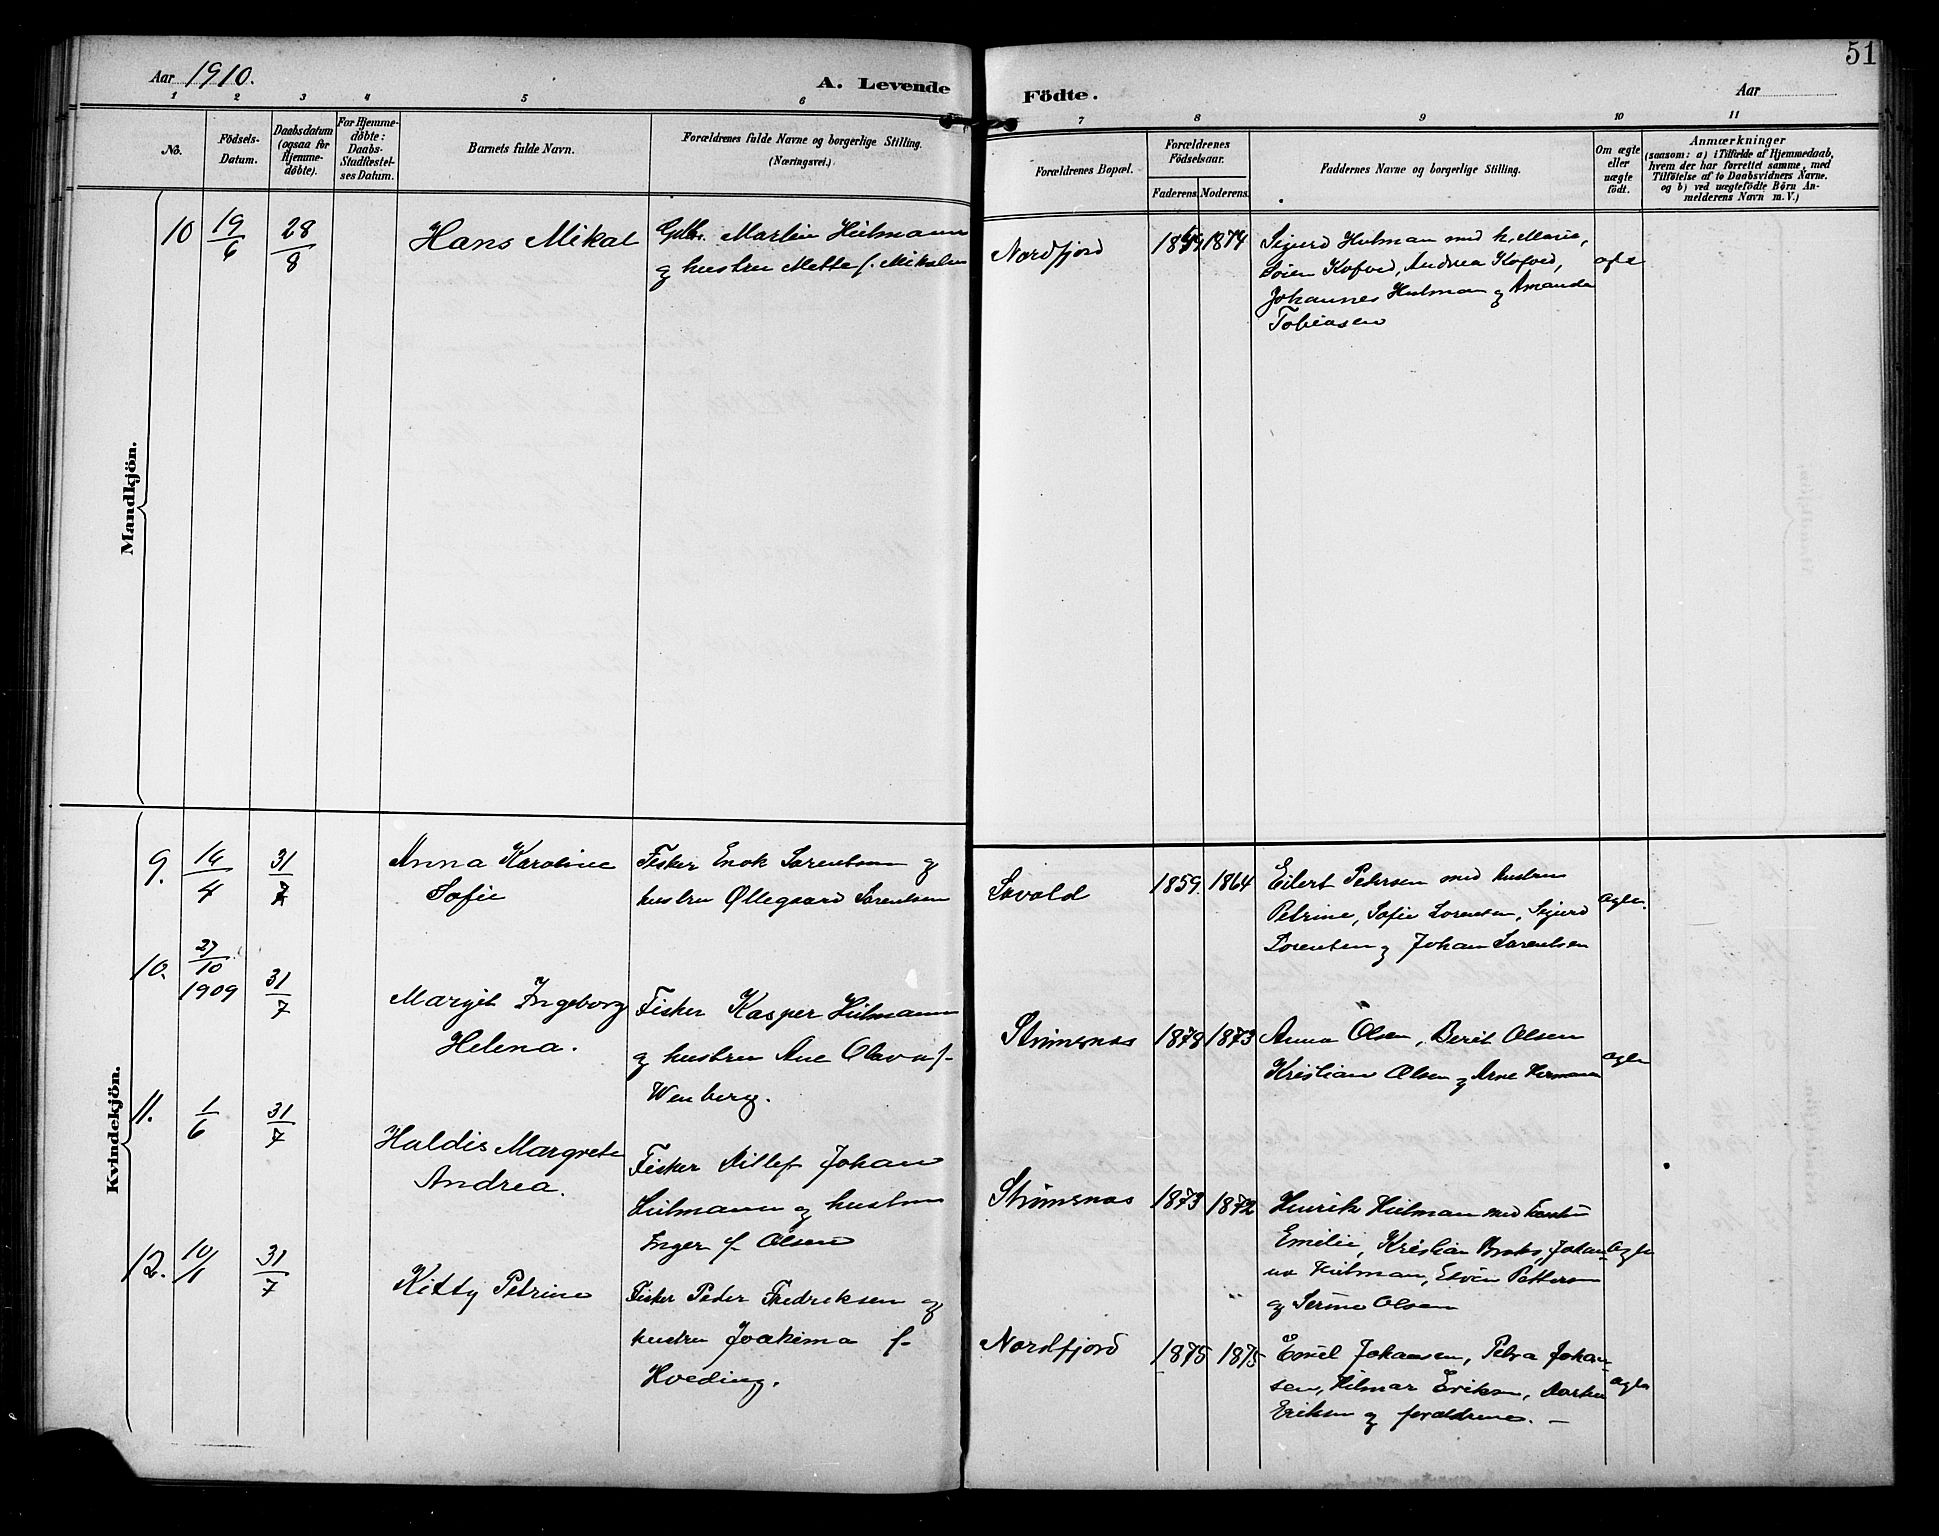 51
Aar 1910.
A. Levende Födte.
Aar
1 2 3 4 5 6 7 8 9 10 11
No.
Födsels-
Datum.
Daabsdatum
(ogsaa for
Hjemme-
döbte).
For Hjemme-
döbte:
Daabs-
Stadfæstel-
ses Datum.
Barnets fulde Navn.
Forældrenes fulde Navne og borgerlige Stilling.
(Næringsvei.)
Forældrenes Bopæl.
Forældrenes
Födselsaar.
Faderens. Moderens.
Faddernes Navne og borgerlige Stilling.
Om ægte
eller
uægte
födt.
Anmærkninger
(saasom: a) i Tilfælde af Hjemmedaab,
hvem der har forrettet samme, med
Tilföielse af to Daabsvidners Navne.
og b) ved uægtefödte Börn An-
melderens Navn m. V.)
Mandkjön.
10 19/6 28/8 Hans Mikal
Martin Hilmann
og hustru Mette f. Mikalsen
Nordfjord 1874
Sigurd Hilman med h. Marie,
Sören Kofoed, Andrea Kofoed,
Johannes Hilman og Amanda
Tobiasen
ægte
Kvindekjön.
9. 14/4 31/7 Anna Karoline
Sofie
Fisker Enok Sørentsen og
hustru Øllegaard Sørentsen
1859. 1864
Eilert Pedersen med hustru
Petrine, Sofie Lorentsen, Sigurd
Lorentsen og Johan Sørentsen
ægte.
10. 27/10 1909 31/7 Margit Ingeborg
Helena.
Fisker Kasper Hilmann
og hustru Ane Olava f.
Wenberg.
Strömsnæs 1878 1873
Anna Olsen, Berit Olsen
Kristian Olsen og Arne
ægte
11. 1/6 31/7 Haldis Margrete
Andrea.
Fisker Ditlef Johan
Hilmann og hustru
Inger f. Olsen
Strömsnæs 1873 1872
Henrik Hilman med hustru
Emilie, Kristian Johan
na Hilman, Edvin Pettersen
og Serine Olsen
ægte
12. 10/1 31/7 Kitty Petrine
Fisker Peder Fredriksen og
hustru Joakima f.
Hveding.
Nordfjord 1875 1875
Emil Johansen, Petra Johan-
sen, Hilmar Eriksen,
Eriksen og forældrene. —
ægte